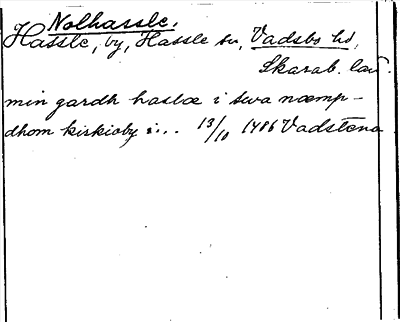 Nolhassle.
Hassle, by, Hassle sn, Vadsbo hd,
Skarab. län.
min gardh haslæ i swa næmp-
dhom kirkioby i... 13/10 1486 Vadstena